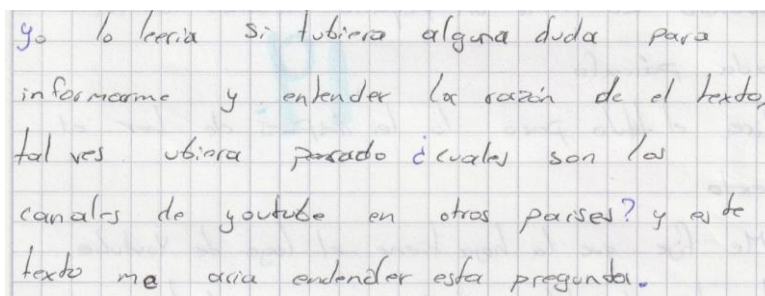 yo lo leeria si tubiera alguna duda para
informarme y entender la razón de el texto,
tal ves ubiera pasado ¿cuales son los
canales de youtube en otros paises? y este
texto me aria endender esta pregunta.